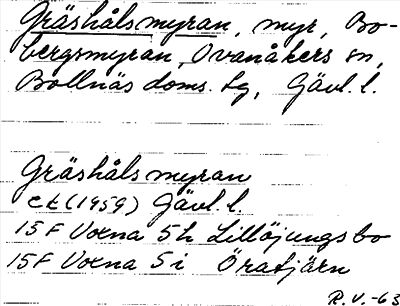 Gräshålsmyran, myr, Bo-
bergsmyran, Ovanåkers sn,
Bollnäs doms. sg, Gävl. l.
Gräshålsmyran
ek (1959) Gävl. l.
15F Voxna 5h Lillöjungsbo
15F Voxna 5i Öratjärn
R. V. -63